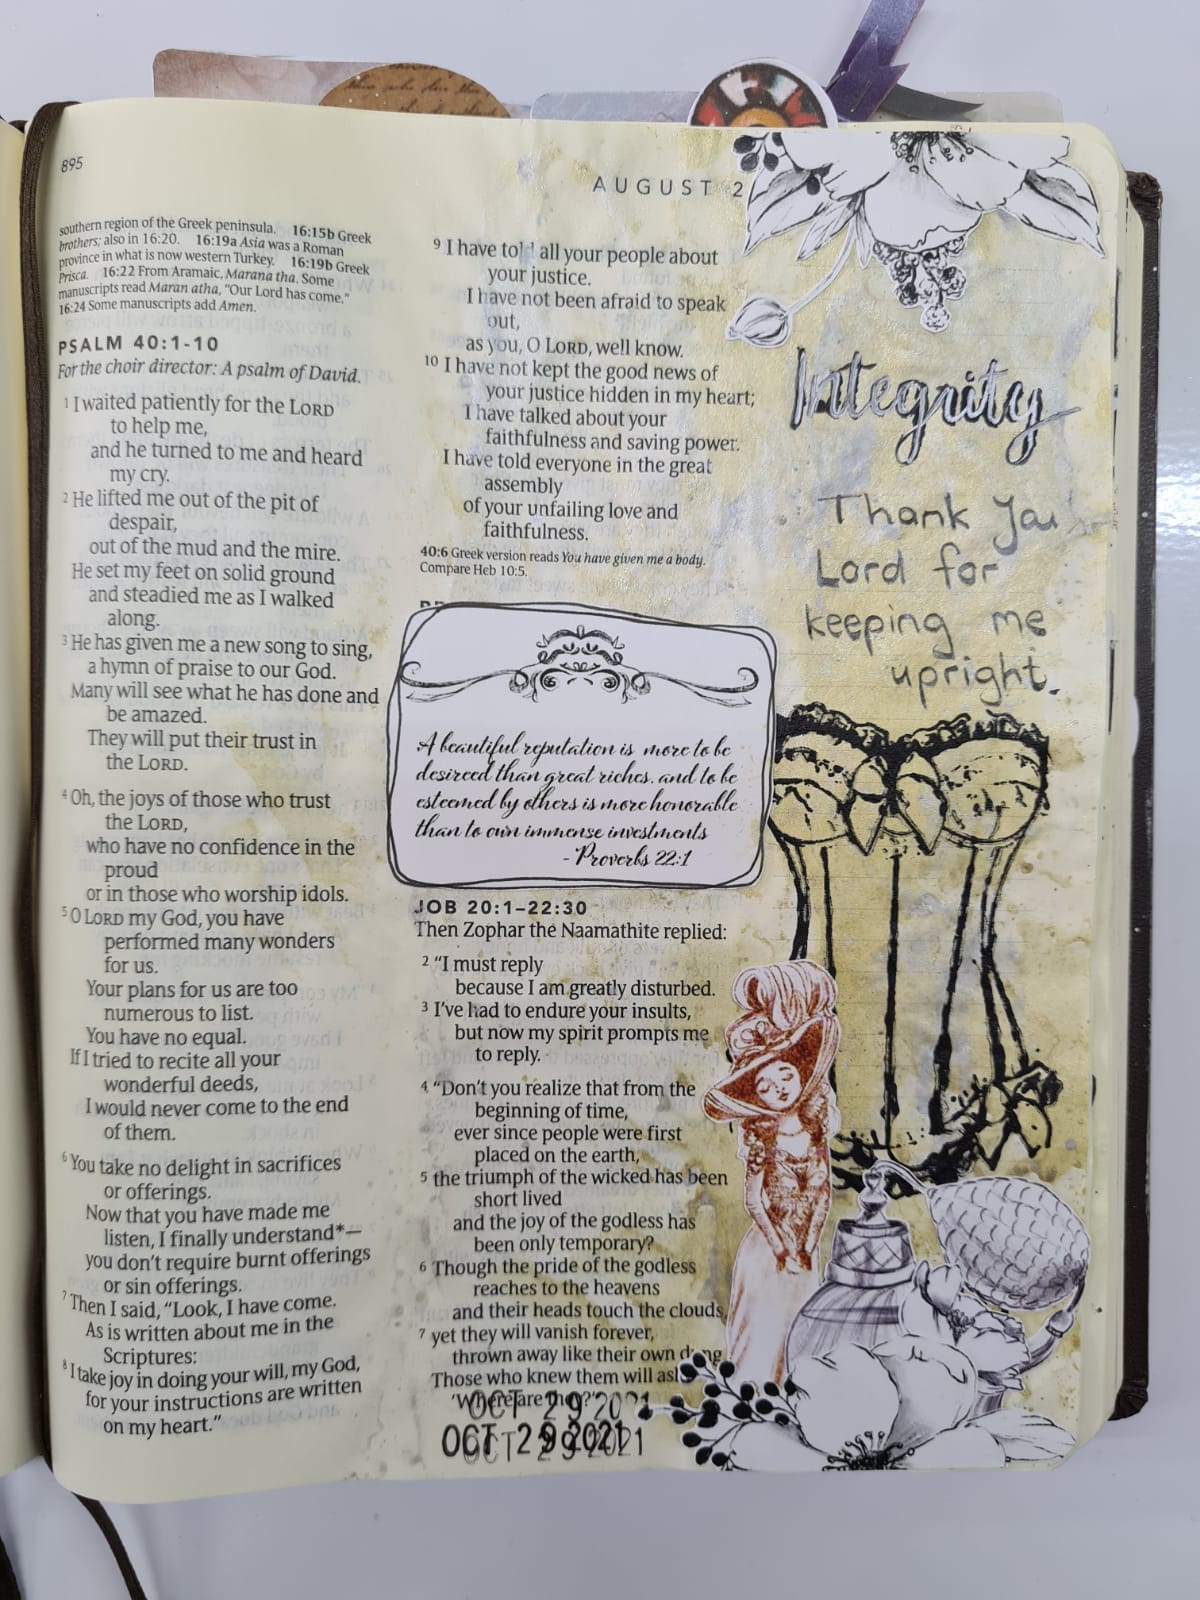 895
southern region of the Greek peninsula. 16:15b Greek
brothers; also in 16:20. 16:19a Asia was a Roman
province in what is now western Turkey. 16:19b Greek
Prisca. 16:22 From Aramaic, Marana tha. Some
manuscripts read Maran atha, "Our Lord has come."
16:24 Some manuscripts add Amen.
PSALM 40:1-10
For the choir director: A psalm of David.
1 I waited patiently for the LORD
to help me,
and he turned to me and heard
my cry.
2 He lifted me out of the pit of
despair,
out of the mud and the mire.
He set my feet on solid ground
and steadied me as I walked
along.
3 He has given me a new song to sing,
a hymn of praise to our God.
Many will see what he has done and
be amazed.
They will put their trust in
the LORD.
4 Oh, the joys of those who trust
the LORD,
who have no confidence in the
proud
or in those who worship idols.
5 O LORD my God, you have
performed many wonders
for us.
Your plans for us are too
numerous to list.
You have no equal.
If I tried to recite all your
wonderful deeds,
I would never come to the end
of them.
6 You take no delight in sacrifices
or offerings.
Now that you have made me
listen, I finally understand*—
you don't require burnt offerings
or sin offerings.
7 Then I said, "Look, I have come.
As is written about me in the
Scriptures:
8 I take joy in doing your will, my God,
for your instructions are written
on my heart."
AUGUST 2
9 I have told all your people about
your justice.
I have not been afraid to speak
out,
as you, O LORD, well know.
10 I have not kept the good news of
your justice hidden in my heart;
I have talked about your
faithfulness and saving power.
I have told everyone in the great
assembly
of your unfailing love and
faithfulness.
40:6 Greek version reads You have given me a body.
Compare Heb 10:5.
A beautiful reputation is more to be
desireed than great riches, and to be
esteemed by others is more honorable
than to own immense investments
- Proverbs 22:1
JOB 20:1–22:30
Then Zophar the Naamathite replied:
2 "I must reply
because I am greatly disturbed.
3 I've had to endure your insults,
but now my spirit prompts me
to reply.
4 "Don't you realize that from the
beginning of time,
ever since people were first
placed on the earth,
5 the triumph of the wicked has been
short lived
and the joy of the godless has
been only temporary?
6 Though the pride of the godless
reaches to the heavens
and their heads touch the clouds,
7 yet they will vanish forever,
thrown away like their own dung
Those who knew them will ask
'Where are they?'
OCT 29 2021
OCT 29 2021
Integrity
Thank You
Lord for
keeping me
upright.